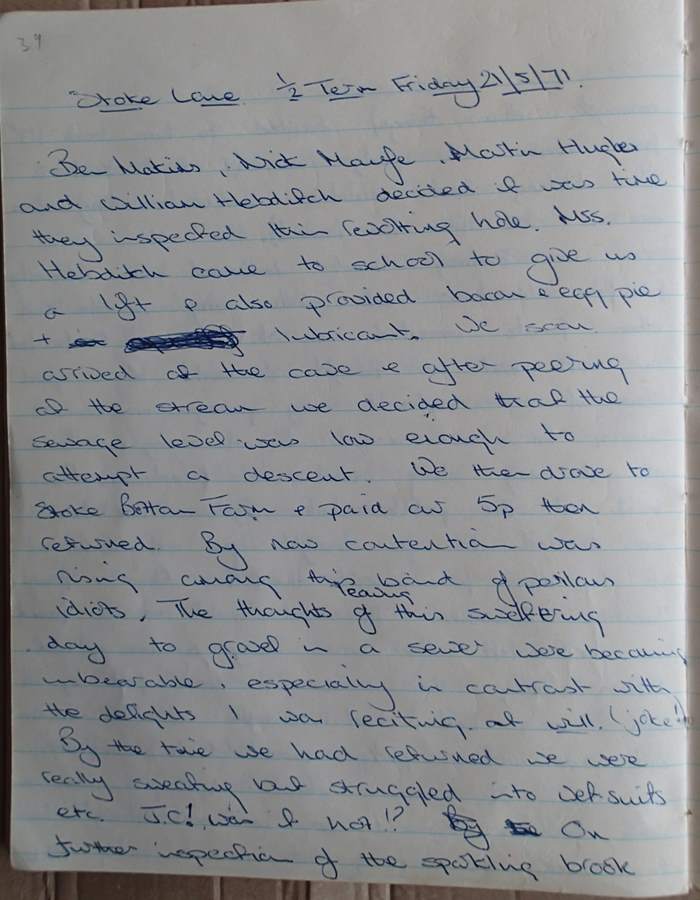 39
Stoke Lane ½ Term Friday 21/5/71.
Ben Makins, Nick Maufe, Martin Hughes
and William Hebditch decided it was time
they inspected this revolting hole. Mrs.
Hebditch came to school to give us
a lift & also provided bacon & egg pie
+ lubricant. We soon
arrived at the cave & after peering
at the stream we decided that the
sewage level was low enough to
attempt a descent. We then drove to
Stoke Bottom Farm & paid our 5p then
returned. By now contention was
rising among this band of perilous
idiots. The thoughts of leaving this sweltering
day to grovel in a sewer were becoming
unbearable, especially in contrast with
the delights I was reciting at will. (joke!)
By the time we had returned we were
really sweating but struggled into wetsuits
etc. J.C! was it hot!? On
further inspection of the sparkling brook